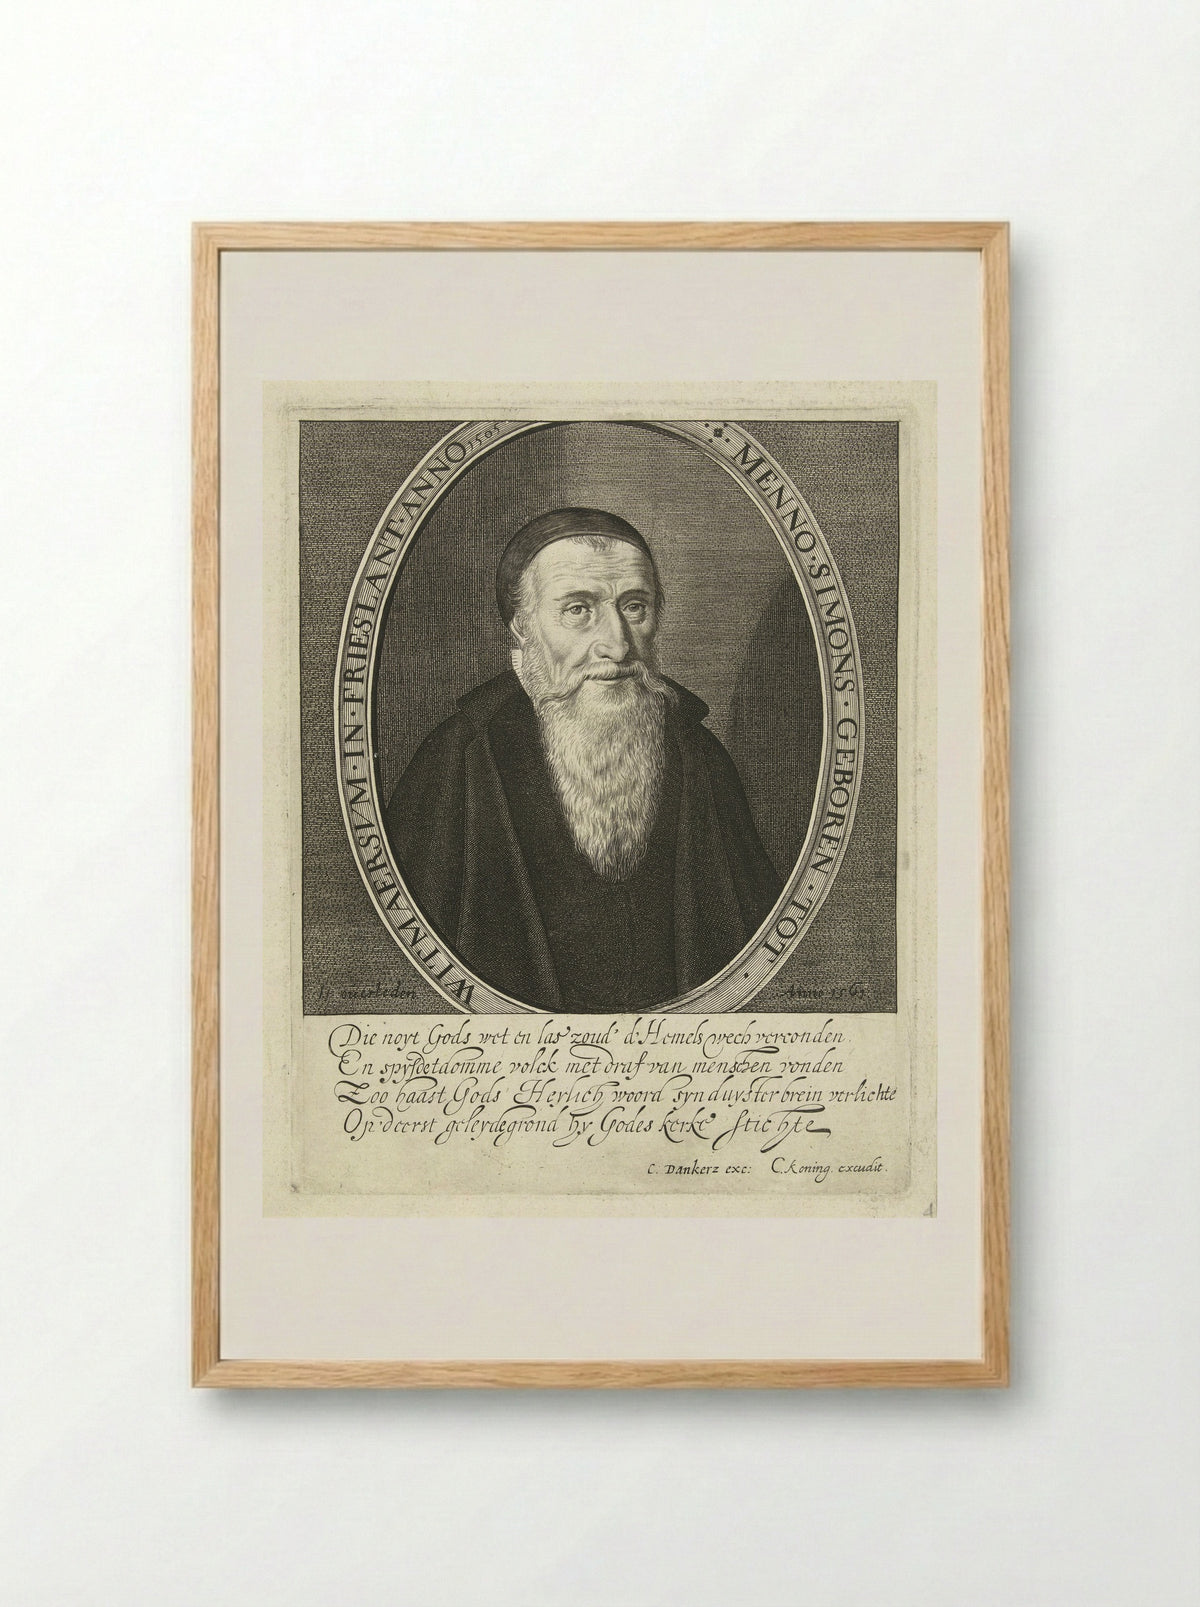 MENNO·SIMONS·GEBOREN·TOT·
WITMAERSVM·IN·FRIESLANT·ANNO 1505
is overleden
Anno 1561
Die noyt Gods wet en las zoud' d'Hemels wech verconden
En spysdet domme volck met draf van menschen vonden
Zoo haast Gods Herlich woord syn duyster brein verlichte
Op d'eerst geleyde grond hy Godes kerke stichte
C. Dankerz exc: C. Koning. excudit.